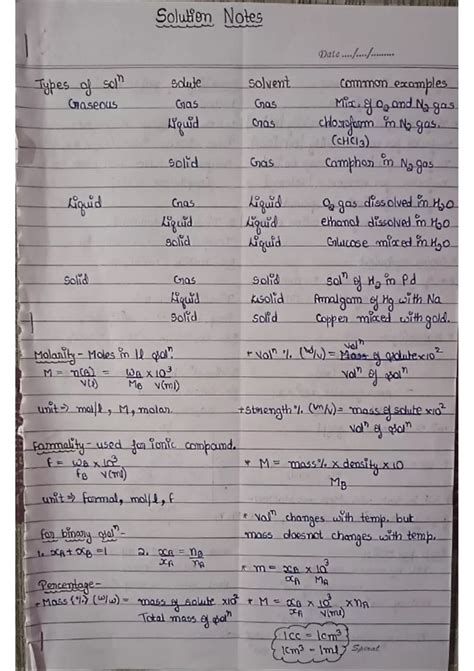 Solution Notes
Date ..../..../.........
Types of solⁿ solute solvent common examples
Gaseous Gas Gas Mix. of O₂ and N₂ gas
Liquid Gas chloroform in N₂ gas.
(CHCl₃)
solid Gas Camphor in N₂ gas
Liquid Gas Liquid O₂ gas dissolved in H₂O
Liquid Liquid ethanol dissolved in H₂O
solid Liquid Glucose mixed in H₂O
Solid Gas Solid solⁿ of H₂ in Pd
Liquid solid Amalgam of Hg with Na
solid solid Copper mixed with gold.
Molarity - Moles in 1l solⁿ.
M = n(B) / V(l) = W_B × 10³ / M_B V(ml)
unit ⇒ mol/l, M, molar.
Formality - used for ionic compound.
f = W_B × 10³ / f_B V(ml)
unit ⇒ formal, mol/l, f
for binary solⁿ -
1. x_A + x_B = 1 2. x_B / x_A = n_B / n_A
Percentage -
* Mass (%) (w/w) = mass of solute × 10² / Total mass of solⁿ
* Volⁿ %. (v/v) = volⁿ of solute × 10² / volⁿ of solⁿ
* Strength % (w/v) = mass of solute × 10² / volⁿ of solⁿ
* M = mass% × density × 10 / M_B
* Volⁿ changes with temp. but
mass doesnot changes with temp.
* m = x_B × 10³ / x_A M_A
* M = x_B × 10³ × n_A / x_A V(ml)
1cc = 1cm³
1cm³ - 1ml
Spiral